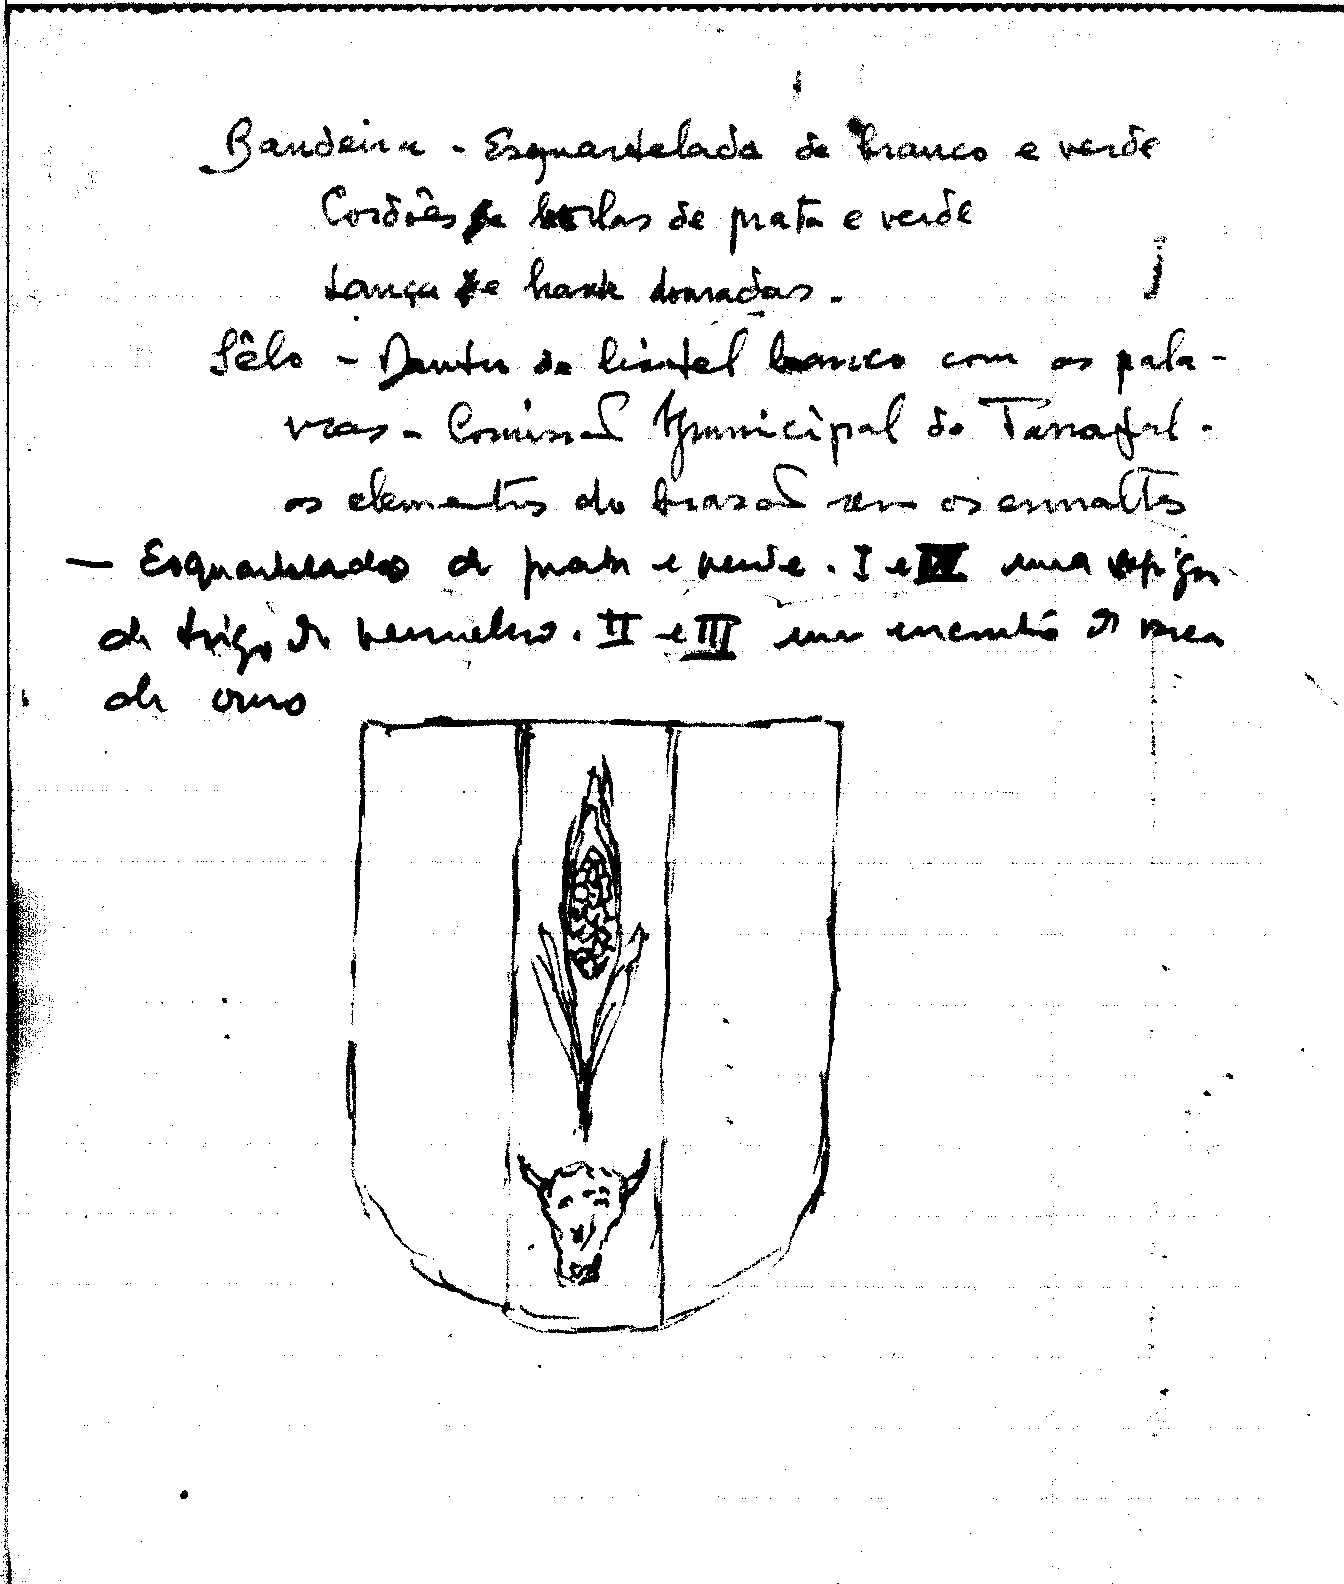 Bandeira - Esquartelada de branco e verde
Cordões e borlas de prata e verde
Lança e haste douradas.
Sêlo - Dentro do listel branco com as pala-
vras - Comissão Municipal do Tarrafal -
os elementos do brasão sem os esmaltes
— Esquartelado de prata e verde. I e IV uma espiga
de trigo de vermelho. II e III um encontro de vaca
de ouro